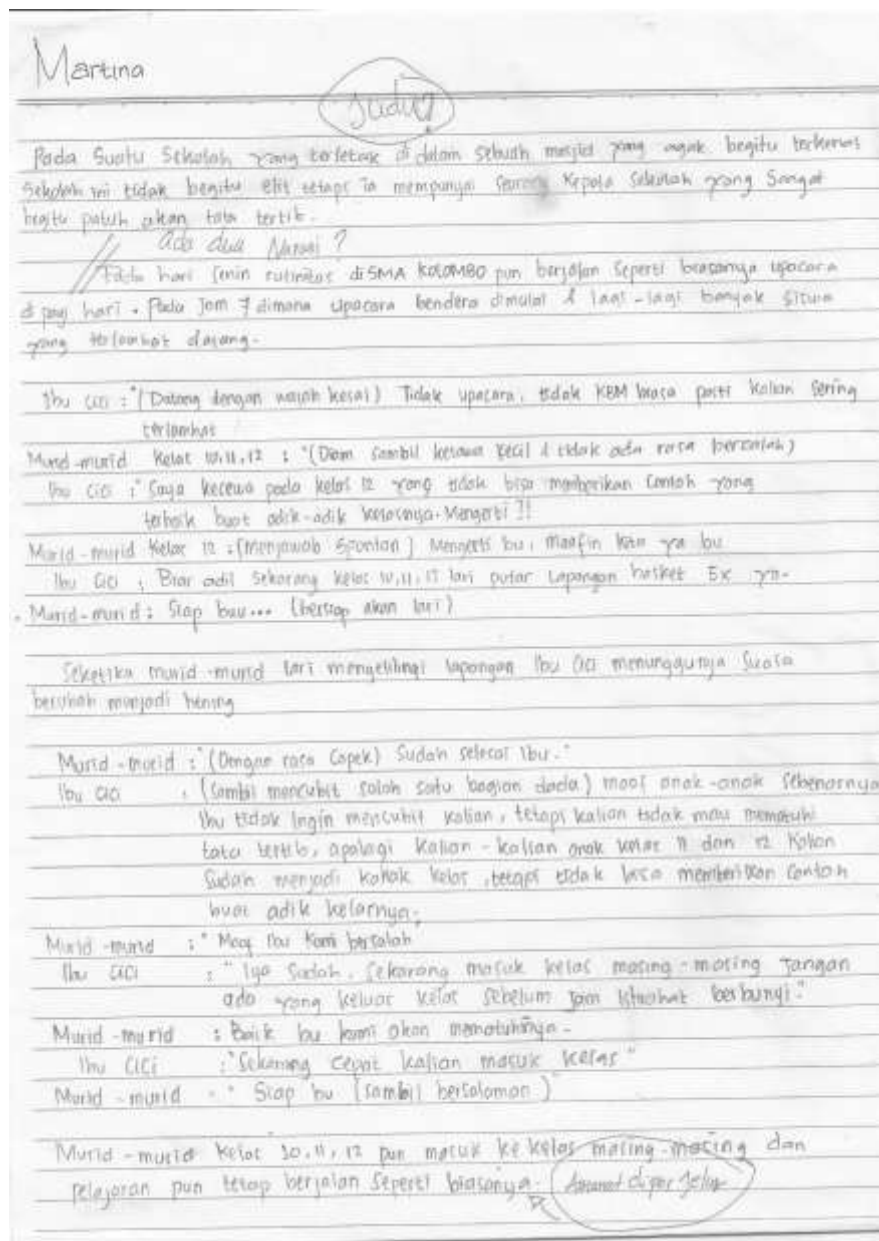 Martina
Judul?
Pada Suatu Sekolah yang terletak di dalam sebuah masjid yang agak begitu terkenal
Sekolah ini tidak begitu elit tetapi Ia mempunyai seorang Kepala Sekolah yang Sangat
begitu patuh akan tata tertib.
Ada dua Narasi ?
Pada hari Senin rutinitas di SMA KOLOMBO pun berjalan Seperti biasanya upacara
di pagi hari. Pada Jam 7 dimana Upacara bendera dimulai & lagi-lagi banyak Siswa
yang terlambat datang.
Ibu Cici : "(Datang dengan wajah kesal) Tidak upacara, tidak KBM biasa pasti kalian Sering
terlambat
Murid-murid Kelas 10,11,12 : "(Diam sambil ketawa kecil & tidak ada rasa bersalah)
Ibu Cici : "Saya kecewa pada kelas 12 yang tidak bisa memberikan Contoh yang
terbaik buat adik-adik kelasnya. Mengerti ?!
Murid-murid Kelas 12 : (Menjawab Spontan) Mengerti bu, maafin kita ya bu
Ibu Cici : Biar adil Sekarang kelas 10,11,12 lari putar Lapangan basket 5x ya.
Murid-murid : Siap buu... (bersiap akan lari)
Seketika murid-murid lari mengelilingi lapangan Ibu Cici menunggunya Suasa
berubah menjadi hening
Murid-murid : "(Dengan rasa Capek) Sudah selesai Ibu."
Ibu Cici : (Sambil mencubit salah satu bagian dada) maaf anak-anak Sebenarnya
Ibu tidak Ingin mencubit kalian, tetapi kalian tidak mau mematuhi
tata tertib, apalagi Kalian-kalian anak kelas 11 dan 12 Kalian
Sudah menjadi kakak kelas, tetapi tidak bisa memberikan Contoh
buat adik kelasnya.
Murid-murid : " Maaf Ibu Kami bersalah
Ibu Cici : " Iya Sudah, Sekarang masuk kelas masing-masing Jangan
ada yang keluar kelas Sebelum Jam Istirahat berbunyi."
Murid-murid : Baik bu kami akan mematuhinya.
Ibu Cici : "Sekarang cepat kalian masuk kelas"
Murid-murid : " Siap bu (sambil bersalaman)
Murid-murid Kelas 10,11,12 pun masuk ke kelas masing-masing dan
pelajaran pun tetap berjalan Seperti biasanya. Amanat diperjelas